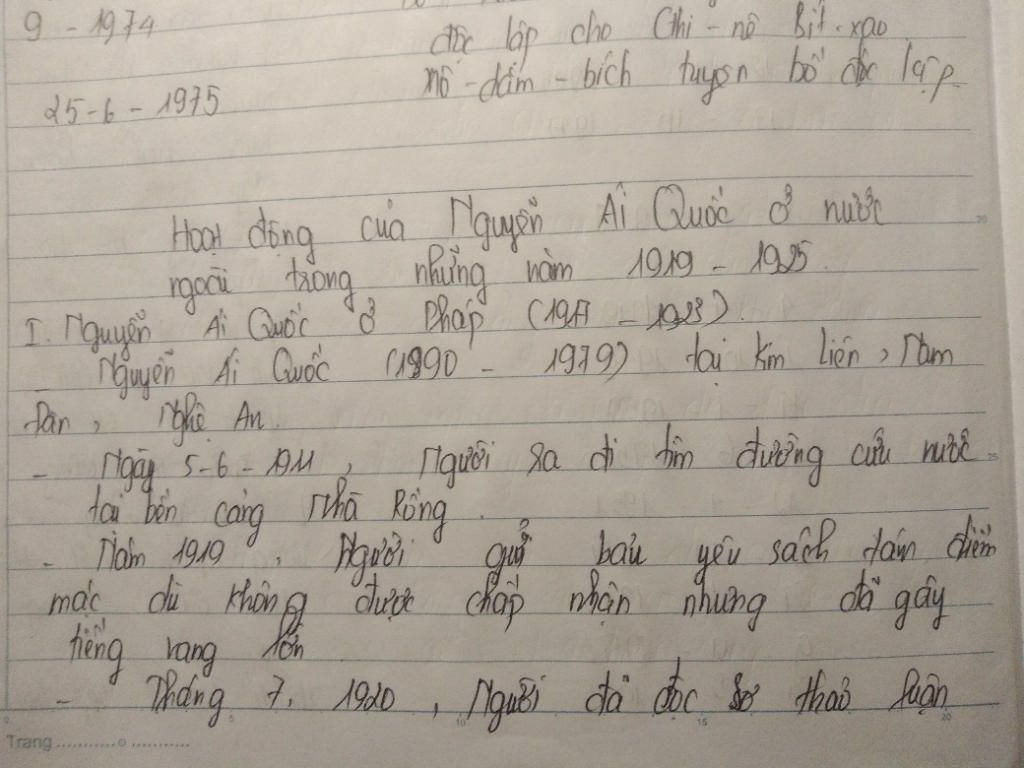 9 - 1974
độc lập cho Ghi - nê Bít-xao
25-6-1975
Mô-dăm-bích tuyên bố độc lập
Hoạt động của Nguyễn Ái Quốc ở nước
ngoài trong những năm 1919 - 1925.
I. Nguyễn Ái Quốc ở Pháp (1917 - 1923).
- Nguyễn Ái Quốc (1890 - 1979) tại Kim Liên, Nam
Đàn, Nghệ An.
- Ngày 5-6-1911, Người ra đi tìm đường cứu nước
tại bến cảng Nhà Rồng.
- Năm 1919, Người gửi bản yêu sách tám điểm
mặc dù không được chấp nhận nhưng đã gây
tiếng vang lớn
- Tháng 7, 1920, Người đã đọc sơ thảo luận
Trang